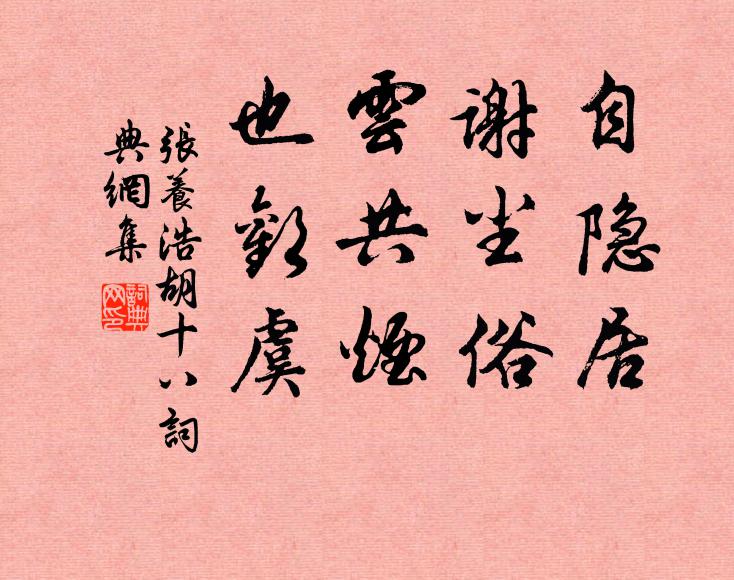 自隐居
謝尘俗
雲共煙
也歡虞
張養浩胡十八詞
典網集
詞典网印